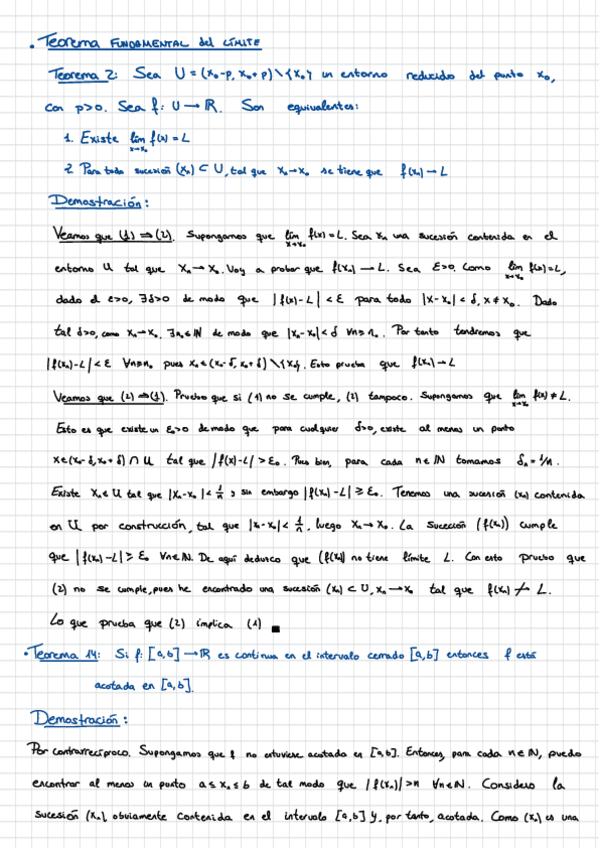 • Teorema FUNDAMENTAL del LÍMITE
Teorema 2: Sea U = (x₀-p, x₀+p) \ {x₀} un entorno reducido del punto x₀,
con p>0. Sea f: U → ℝ. Son equivalentes:
1. Existe lim_{x→x₀} f(x) = L
2. Para toda sucesión (xₙ) ⊂ U, tal que xₙ → x₀ se tiene que f(xₙ) → L
Demostración:
Veamos que (1) ⇒ (2). Supongamos que lim_{x→x₀} f(x) = L. Sea xₙ una sucesión contenida en el
entorno U tal que xₙ → x₀. Voy a probar que f(xₙ) → L. Sea ε>0. Como lim_{x→x₀} f(x) = L,
dado el ε>0, ∃δ>0 de modo que |f(x)-L| < ε para todo |x-x₀| < δ, x ≠ x₀. Dado
tal δ>0, como xₙ → x₀. ∃n₀ ∈ ℕ de modo que |xₙ-x₀| < δ ∀n ≥ n₀. Por tanto tendremos que
|f(xₙ)-L| < ε ∀n ≥ n₀ pues xₙ ∈ (x₀-δ, x₀+δ) \ {x₀}. Esto prueba que f(xₙ) → L
Veamos que (2) ⇒ (1). Pruebo que si (1) no se cumple, (2) tampoco. Supongamos que lim_{x→x₀} f(x) ≠ L.
Esto es que existe un ε₀>0 de modo que para cualquier δ>0, existe al menos un punto
x ∈ (x₀-δ, x₀+δ) ∩ U tal que |f(x)-L| > ε₀. Pues bien, para cada n ∈ ℕ tomamos δₙ = 1/n.
Existe xₙ ∈ U tal que |xₙ-x₀| < 1/n y sin embargo |f(xₙ)-L| ≥ ε₀. Tenemos una sucesión (xₙ) contenida
en U por construcción, tal que |xₙ-x₀| < 1/n, luego xₙ → x₀. La sucesión (f(xₙ)) cumple
que |f(xₙ)-L| ≥ ε₀ ∀n ∈ ℕ. De aquí deduzco que (f(xₙ)) no tiene límite L. Con esto pruebo que
(2) no se cumple, pues he encontrado una sucesión (xₙ) ⊂ U, xₙ → x₀ tal que f(xₙ) ↛ L.
Lo que prueba que (2) implica (1) ■
• Teorema 14: Si f: [a,b] → ℝ es continua en el intervalo cerrado [a,b] entonces f está
acotada en [a,b].
Demostración:
Por contrarrecíproco. Supongamos que f no estuviese acotada en [a,b]. Entonces, para cada n ∈ ℕ, puedo
encontrar al menos un punto a ≤ xₙ ≤ b de tal modo que |f(xₙ)| > n ∀n ∈ ℕ. Considero la
sucesión (xₙ), obviamente contenida en el intervalo [a,b] y, por tanto, acotada. Como (xₙ) es una